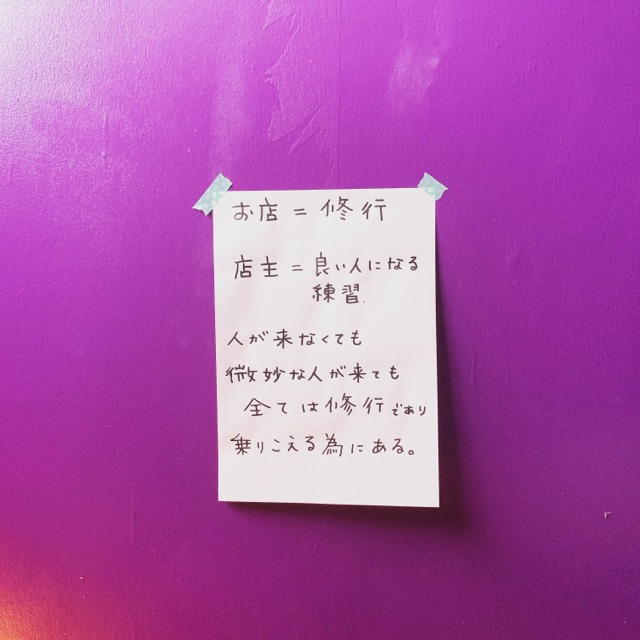 お店＝修行
店主＝良い人になる
練習
人が来なくても
微妙な人が来ても
全ては修行であり
乗りこえる為にある。